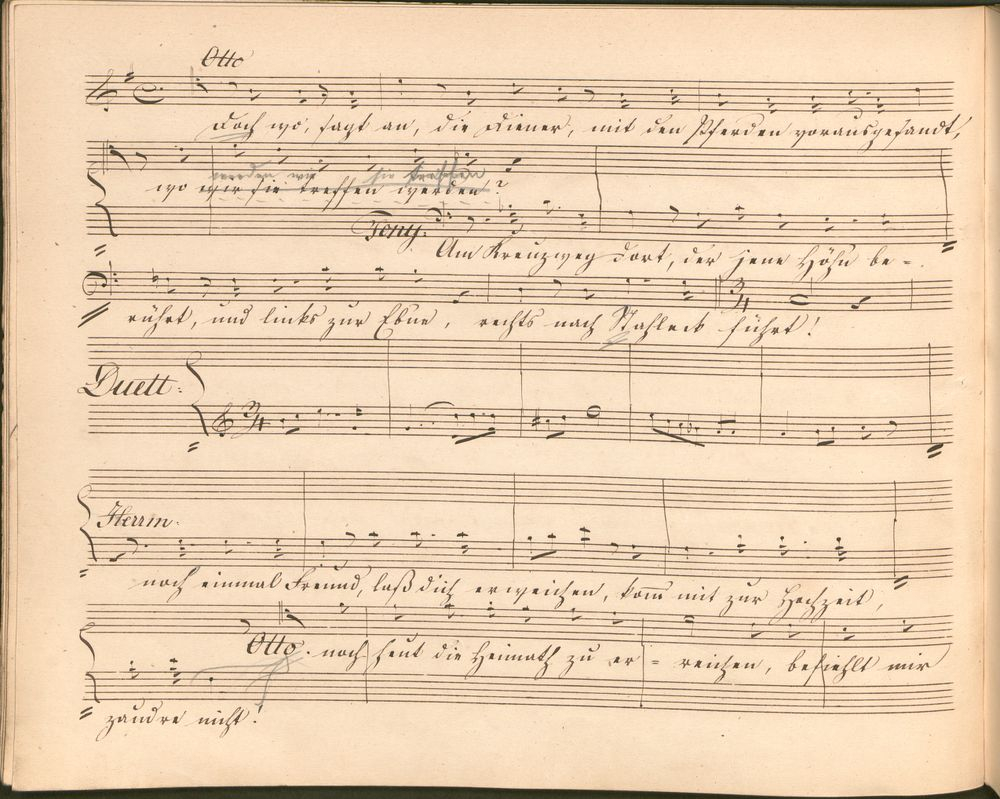 Otto
Doch wo, sagt an, die Diener, mit den Pferden vorausgesandt,
werden wir sie treffen
wo wir sie treffen werden?
Tony:
Am Kreuzweg dort, der jene Höhn be-
rührt, und links zur Ebne, rechts nach Stahleck führt!
Duett:
Herrm:
noch einmal Freund, laß dich erweichen, kom mit zur Hochzeit,
Otto. noch heut die Heimath zu er-reichen, befiehlt mir
zaudre nicht!